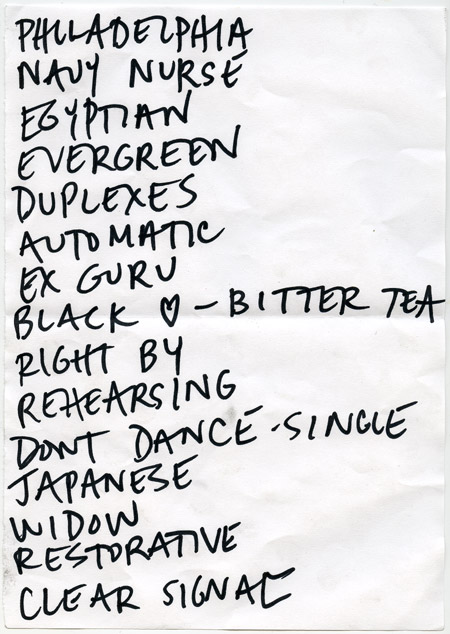 PHILADELPHIA
NAVY NURSE
EGYPTIAN
EVERGREEN
DUPLEXES
AUTOMATIC
EX GURU
BLACK ♡ - BITTER TEA
RIGHT BY
REHEARSING
DONT DANCE - SINGLE
JAPANESE
WIDOW
RESTORATIVE
CLEAR SIGNAL